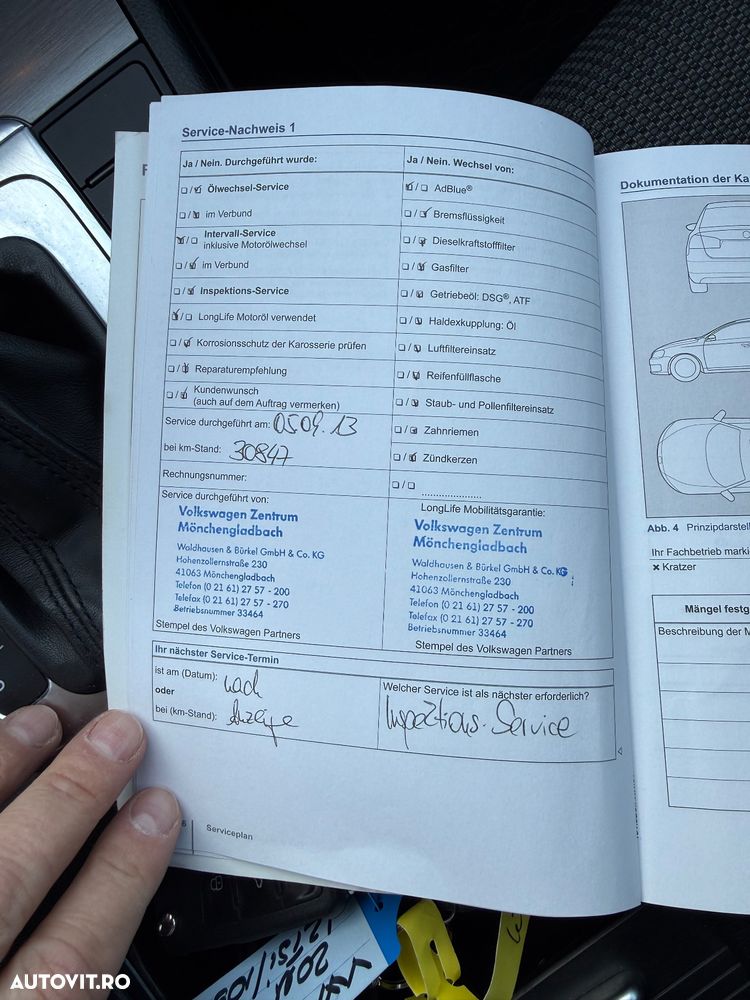 Service-Nachweis 1
Ja / Nein. Durchgeführt wurde:
Ölwechsel-Service
im Verbund
Intervall-Service
inklusive Motorölwechsel
im Verbund
Inspektions-Service
LongLife Motoröl verwendet
Korrosionsschutz der Karosserie prüfen
Reparaturempfehlung
Kundenwunsch
(auch auf dem Auftrag vermerken)
Service durchgeführt am: 05.09.13
bei km-Stand: 30847
Rechnungsnummer:
Service durchgeführt von:
Volkswagen Zentrum
Mönchengladbach
Waldhausen & Bürkel GmbH & Co. KG
Hohenzollernstraße 230
41063 Mönchengladbach
Telefon (0 21 61) 27 57 - 200
Telefax (0 21 61) 27 57 - 270
Betriebsnummer 33464
Stempel des Volkswagen Partners
Ja / Nein. Wechsel von:
AdBlue®
Bremsflüssigkeit
Dieselkraftstofffilter
Gasfilter
Getriebeöl: DSG®, ATF
Haldexkupplung: Öl
Luftfiltereinsatz
Reifenfüllflasche
Staub- und Pollenfiltereinsatz
Zahnriemen
Zündkerzen
LongLife Mobilitätsgarantie:
Volkswagen Zentrum
Mönchengladbach
Waldhausen & Bürkel GmbH & Co. KG
Hohenzollernstraße 230
41063 Mönchengladbach
Telefon (0 21 61) 27 57 - 200
Telefax (0 21 61) 27 57 - 270
Betriebsnummer 33464
Stempel des Volkswagen Partners
Ihr nächster Service-Termin
ist am (Datum): nach
oder
bei (km-Stand): Anzeige
Welcher Service ist als nächster erforderlich?
Inspektions-Service
6 Serviceplan
Dokumentation der Ka
Abb. 4 Prinzipdarstell
Ihr Fachbetrieb marki
× Kratzer
Mängel festg
Beschreibung der M
AUTOVIT.RO